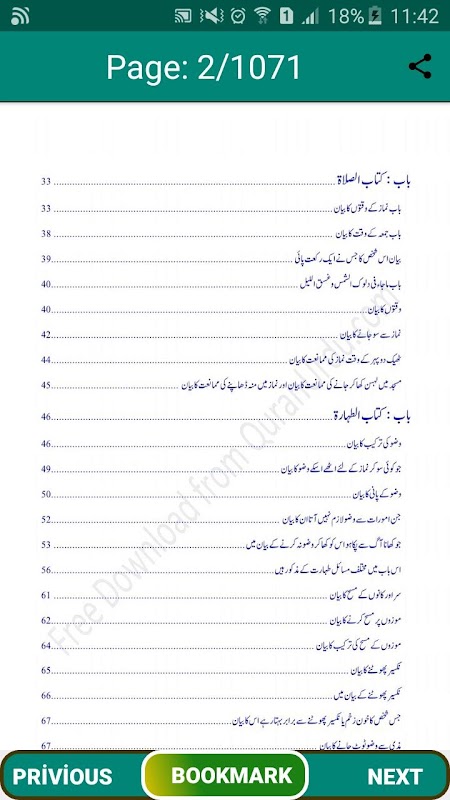 18% 11:42
Page: 2/1071
باب : کتاب الصلاۃ ........ 33
باب نماز کے وقتوں کا بیان ........ 33
باب جمعہ کے وقت کا بیان ........ 38
بیان اس شخص کا جس نے ایک رکعت پائی ........ 39
باب ماجاء فی دلوک الشمس وغسق اللیل ........ 40
وقتوں کا بیان ........ 40
نماز سے سو جانے کا بیان ........ 42
ٹھیک دوپہر کے وقت نماز کی ممانعت کا بیان ........ 44
مسجد میں لہسن کھا کر جانے کی ممانعت کا بیان اور نماز میں منہ ڈھاپنے کی ممانعت کا بیان ........ 45
باب : کتاب الطہارۃ ........ 46
وضو کی ترکیب کا بیان ........ 46
جو کوئی سو کر نماز کے لئے اٹھے اسکے وضو کا بیان ........ 49
وضو کے پانی کا بیان ........ 50
جن امورات سے وضو لازم نہیں آتا ان کا بیان ........ 52
جو کھانا آگ سے پکا ہو اس کو کھا کر وضو نہ کرنے کے بیان میں ........ 53
اس باب میں مختلف مسائل طہارت کے مذکور ہیں ........ 56
سر اور کانوں کے مسح کا بیان ........ 61
موزوں پر مسح کرنے کا بیان ........ 62
موزوں کے مسح کی ترکیب کا بیان ........ 64
نکسیر پھوٹنے کا بیان ........ 65
نکسیر پھوٹنے کے بیان میں ........ 66
جس شخص کا خون زخم یا نکسیر پھوٹنے سے برابر بہتا رہے اس کا بیان ........ 67
مذی سے وضو ٹوٹ جانے کا بیان ........ 67
Free Download from QuranUrdu.com
PRİVİOUS
BOOKMARK
NEXT